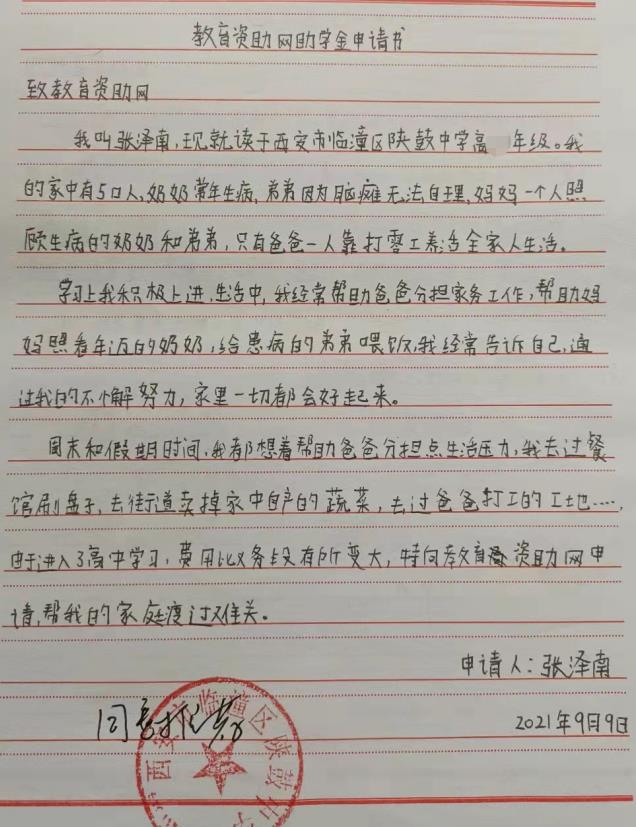 教育资助网助学金申请书
致教育资助网
我叫张泽南,现就读于西安市临潼区陕鼓中学高 年级。我
的家中有5口人,奶奶常年生病,弟弟因为脑瘫无法自理,妈妈一个人照
顾生病的奶奶和弟弟,只有爸爸一人靠打零工养活全家人生活。
学习上我积极上进,生活中,我经常帮助爸爸分担家务工作,帮助妈
妈照看年迈的奶奶,给患病的弟弟喂饭,我经常告诉自己,通
过我的不懈努力,家里一切都会好起来。
周末和假期时间,我都想着帮助爸爸分担点生活压力,我去过餐
馆刷盘子,去街道卖掉家中自产的蔬菜,去过爸爸打工的工地……
由于进入了高中学习,费用比义务段有所变大,特向教育资助网申
请,帮我的家庭渡过难关。
申请人:张泽南
2021年9月9日
同意
西安市临潼区陕鼓中学